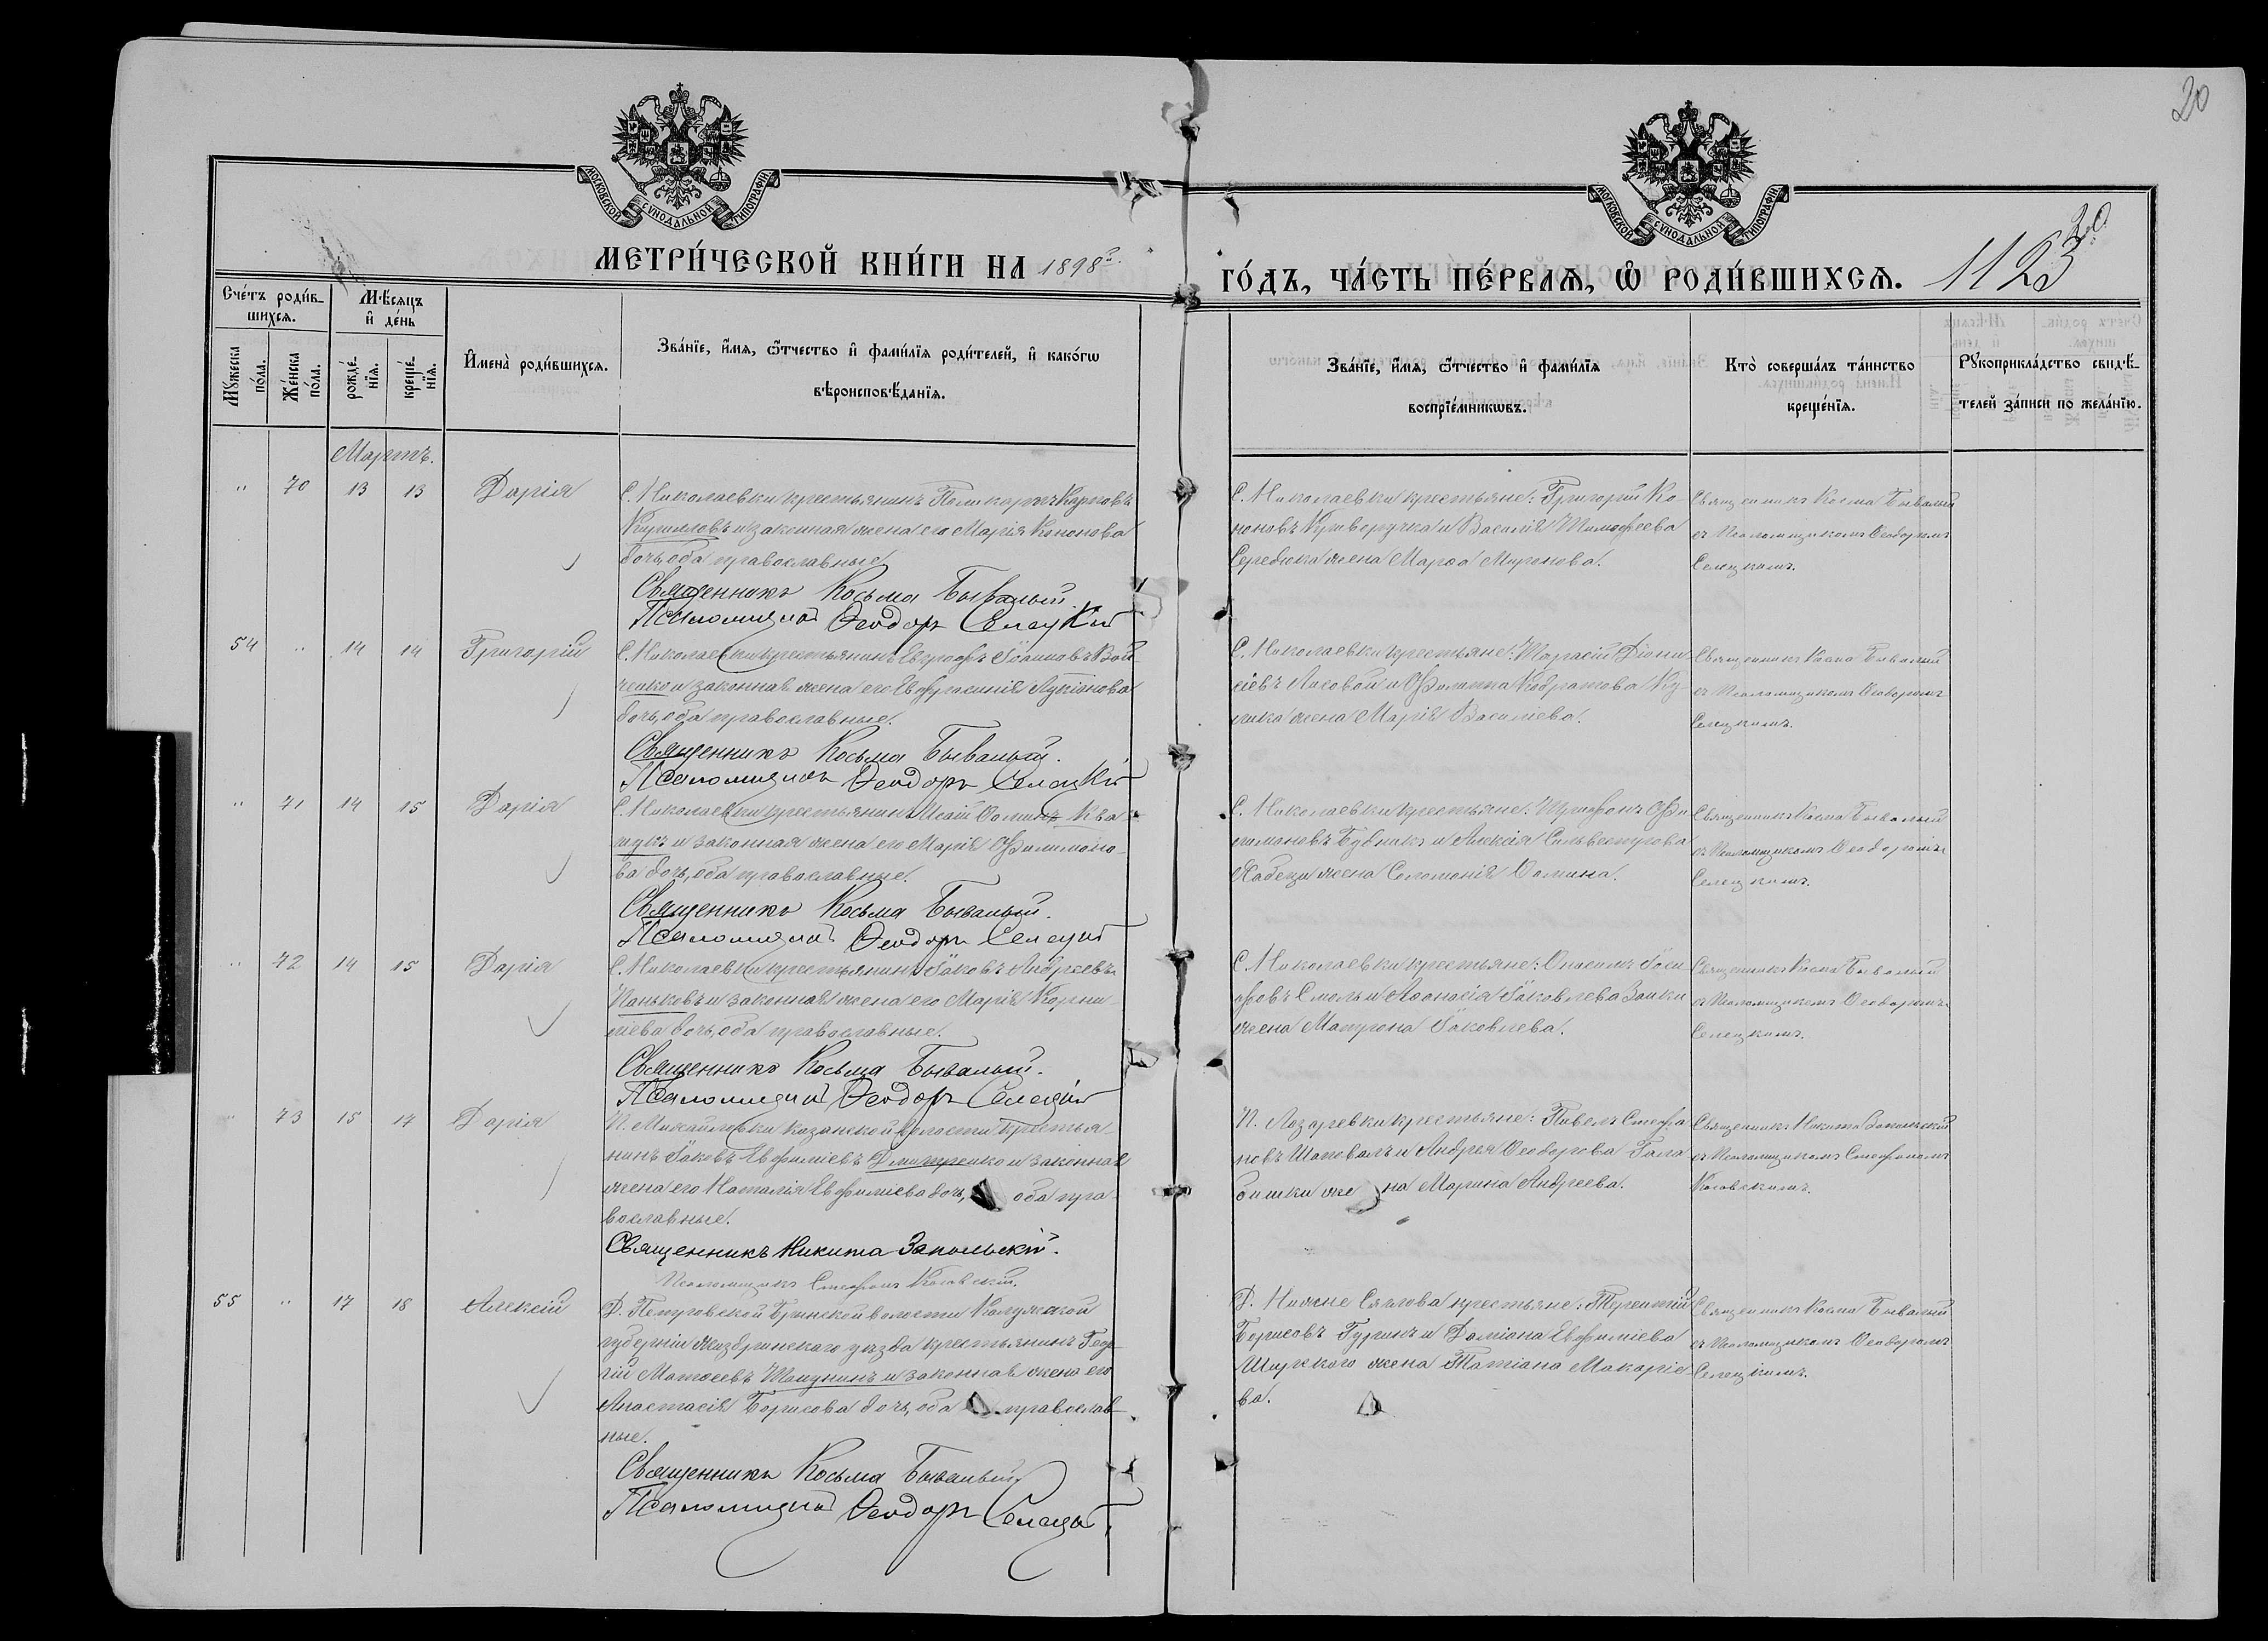 20
МОСКОВСКОЙ СУНОДАЛЬНОЙ ТИПОГРАФІИ
МОСКОВСКОЙ СУНОДАЛЬНОЙ ТИПОГРАФІИ
МЕТРИ́ЧЕСКОЙ КНИ́ГИ НА 1898 г.
ГО́ДЪ, ЧА́СТЬ ПЕ́РВАѦ, Ѽ РОДИ́ВШИХСѦ. 1123 20
Сче́тъ роди́в-
шихсѧ.
Мѣ́сѧцъ
и҆ де́нь
Мꙋ́жеска по́ла.
Же́нска по́ла.
рожде́-нїѧ.
креще́-нїѧ.
И҆мена̀ роди́вшихсѧ.
Зва́нїе, и҆́мѧ, ѻ҆́тчество и҆ фами́лїѧ роди́телей, и҆ како́гѡ
вѣроисповѣ́данїѧ.
Зва́нїе, и҆́мѧ, ѻ҆́тчество и҆ фами́лїѧ
воспрїе́мникѡвъ.
Кто̀ соверша́лъ та́инство
креще́нїѧ.
Рꙋкоприкла́дство свидѣ́-
телей за́писи по жела́нїю.
Мартъ.
" 70 13 13 Дарія
С. Николаевки крестьянинъ Поликарпъ Карповъ
Кирилловъ и законная жена его Марія Кононова
дочь, оба православные
Священникъ Косьма Бывалый.
Псаломщикъ Ѳеодоръ Селецкій
С. Николаевки крестьяне: Григорій Ко-
ноновъ Криворучка и Василія Тимофеева
Середюка жена Марѳа Миронова.
Священникъ Косма Бывалый
съ Псаломщикомъ Ѳеодоромъ
Селецкимъ.
54 " 14 14 Григорій
С. Николаевки крестьянинъ Іоанновъ Вой-
ченко и законная жена его Евфросинія Лукіянова
дочь, оба православные.
Священникъ Косьма Бывалый.
Псаломщикъ Ѳеодоръ Селецкій
С. Николаевки крестьяне: Тарасій Діони-
сіевъ Лисовой и Филиппа Кодратова Ку-
лика жена Марія Василіева.
Священникъ Косма Бывалый
съ Псаломщикомъ Ѳеодоромъ
Селецкимъ.
" 71 14 15 Дарія
С. Николаевки крестьянинъ Исаій Ѳоминъ Ква-
шукъ и законная жена его Марія Филимоно-
ва дочь, оба православные.
Священникъ Косьма Бывалый.
Псаломщикъ Ѳеодоръ Селецкій
С. Николаевки крестьяне: Трифонъ Фи-
лимоновъ Будникъ и Алексія Сильвестрова
жена Соломонія Ѳомина.
Священникъ Косма Бывалый
съ Псаломщикомъ Ѳеодоромъ
Селецкимъ.
" 72 14 15 Дарія
С. Николаевки крестьянинъ Іаковъ Андреевъ
Паньковъ и законная жена его Марія Корни-
ліева дочь, оба православные.
Священникъ Косьма Бывалый.
Псаломщикъ Ѳеодоръ Селецкій
С. Николаевки крестьяне: Онисимъ Іоси-
фовъ Смоль и Аѳанасія Іаковлева Заики
жена Матрона Іаковлева.
Священникъ Косма Бывалый
съ Псаломщикомъ Ѳеодоромъ
Селецкимъ.
" 73 15 17 Дарія
П. Михайловки Казанской волости крестья-
нинъ Іаковъ Евфиміевъ Дмитренко и законная
жена его Наталія Евфиміева дочь, оба пра-
вославные.
Священникъ Никита Запольскій.
Псаломщикъ Стефанъ Косовскій.
П. Лазаревки крестьяне: Павелъ Стефа-
новъ Шаповалъ и Андрея Ѳеодорова Гала-
бишки жена Марина Андреева.
Священникъ Никита Запольскій
съ Псаломщикомъ Стефаномъ
Косовскимъ.
55 " 17 18 Алексій
Д. Петровской Брынской волости Калужской
губерніи Жиздринскаго уѣзда крестьянинъ Геор-
гій Матѳеевъ и законная жена его
Анастасія Борисова дочь, оба православ-
ные.
Священникъ Косьма Бывалый
Псаломщикъ Ѳеодоръ Селецкій
Д. крестьяне: Терентій
Борисовъ Гуринъ и Доміана Евфиміева
жена Татіана Макаріе-
ва.
Священникъ Косма Бывалый
съ Псаломщикомъ Ѳеодоромъ
Селецкимъ.